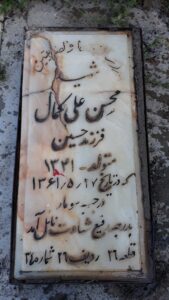 شهید
محسن علی کمال
فرزند حسین
متولد ۱۳۴۱
که در تاریخ ۱۳۶۱/۵/۲۷
در جبهه سومار
بدرجه رفیع شهادت نائل آمد
قطعه ۲۶ ردیف ۲۶ شماره